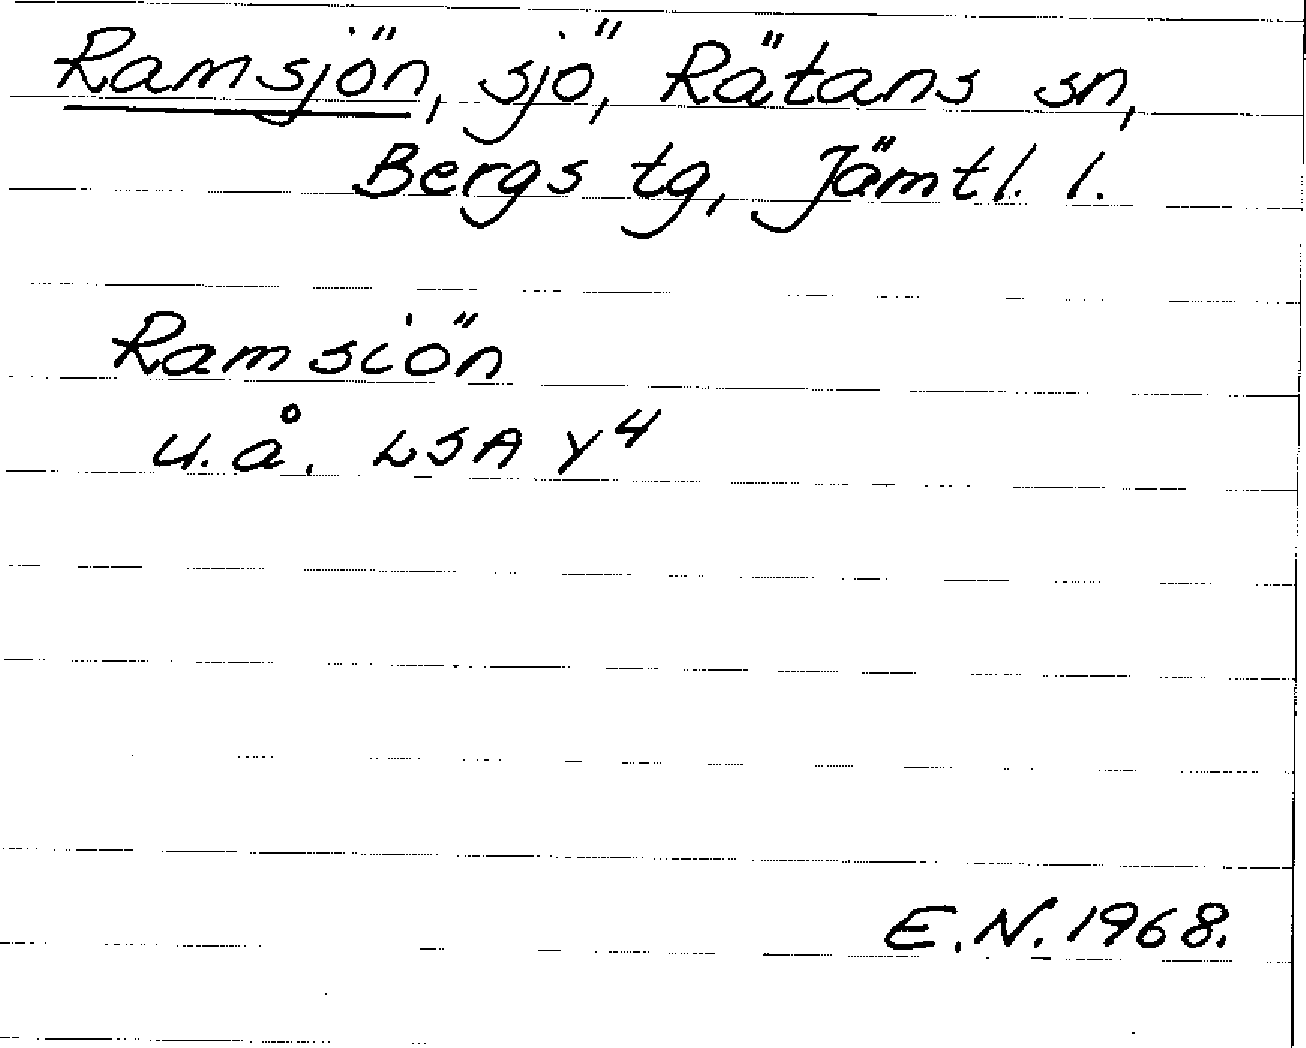 Ramsjön, sjö, Rätans sn,
Bergs tg, Jämtl. l.
Ramsiön
u.å. LSA Y4
E.N. 1968.